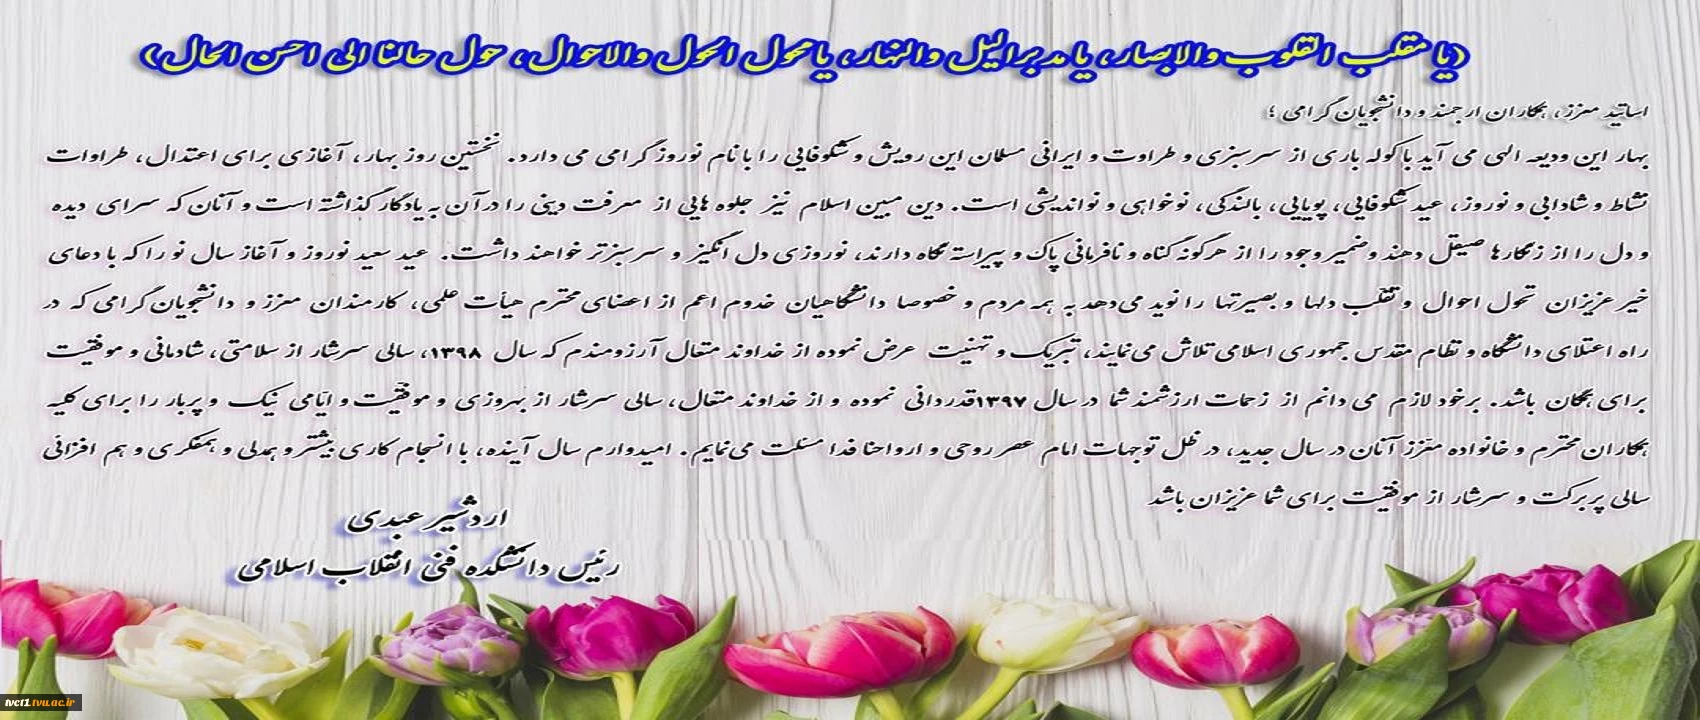 (یا مقلب القلوب والابصار، یا مدبرالیل والنهار، یا محول الحول والاحوال، حول حالنا الی احسن الحال)
اساتید معزز، همکاران ارجمند و دانشجویان گرامی ؛
بهار این ودیعه الهی می آید با کوله باری از سرسبزی و طراوت و ایرانی مسلمان این رویش و شکوفایی را با نام نوروز گرامی می دارد. نخستین روز بهار، آغازی برای اعتدال، طراوات
نشاط و شادابی و نوروز، عید شکوفایی، پویایی، بالندگی، نوخواهی و نواندیشی است. دین مبین اسلام نیز جلوه هایی از معرفت دینی را در آن به یادگار گذاشته است و آنان که سرای دیده
و دل را از زنگارها صیقل دهند و ضمیر وجود را از هرگونه گناه و نافرمانی پاک و پیراسته نگاه دارند، نوروزی دل انگیز و سرسبزتر خواهند داشت. عید سعید نوروز و آغاز سال نو را که با دعای
خیر عزیزان تحول احوال و تقلب دلها و بصیرتها را نوید می‌دهد به همه مردم و خصوصا دانشگاهیان خدوم اعم از اعضای محترم هیأت علمی، کارمندان معزز و دانشجویان گرامی که در
راه اعتلای دانشگاه و نظام مقدس جمهوری اسلامی تلاش می‌نمایند، تبریک و تهنیت عرض نموده از خداوند متعال آرزومندم که سال ۱۳۹۸، سالی سرشار از سلامتی، شادمانی و موفقیت
برای همگان باشد. برخود لازم می دانم از زحمات ارزشمند شما در سال ۱۳۹۷قدردانی نموده و از خداوند متعال، سالی سرشار از بهروزی و موفقیت و ایّامی نیک و پربار را برای کلیه
همکاران محترم و خانواده معزز آنان در سال جدید، در ظل توجهات امام عصر روحی و ارواحنا فدا مسئلت می‌نمایم. امیدوارم سال آینده، با انسجام کاری بیشتر و همدلی و همفکری و هم افزائی
سالی پر برکت و سرشار از موفقیت برای شما عزیزان باشد
اردشیر عبدی
رئیس دانشکده فنی انقلاب اسلامی
tvct1.tvu.ac.ir